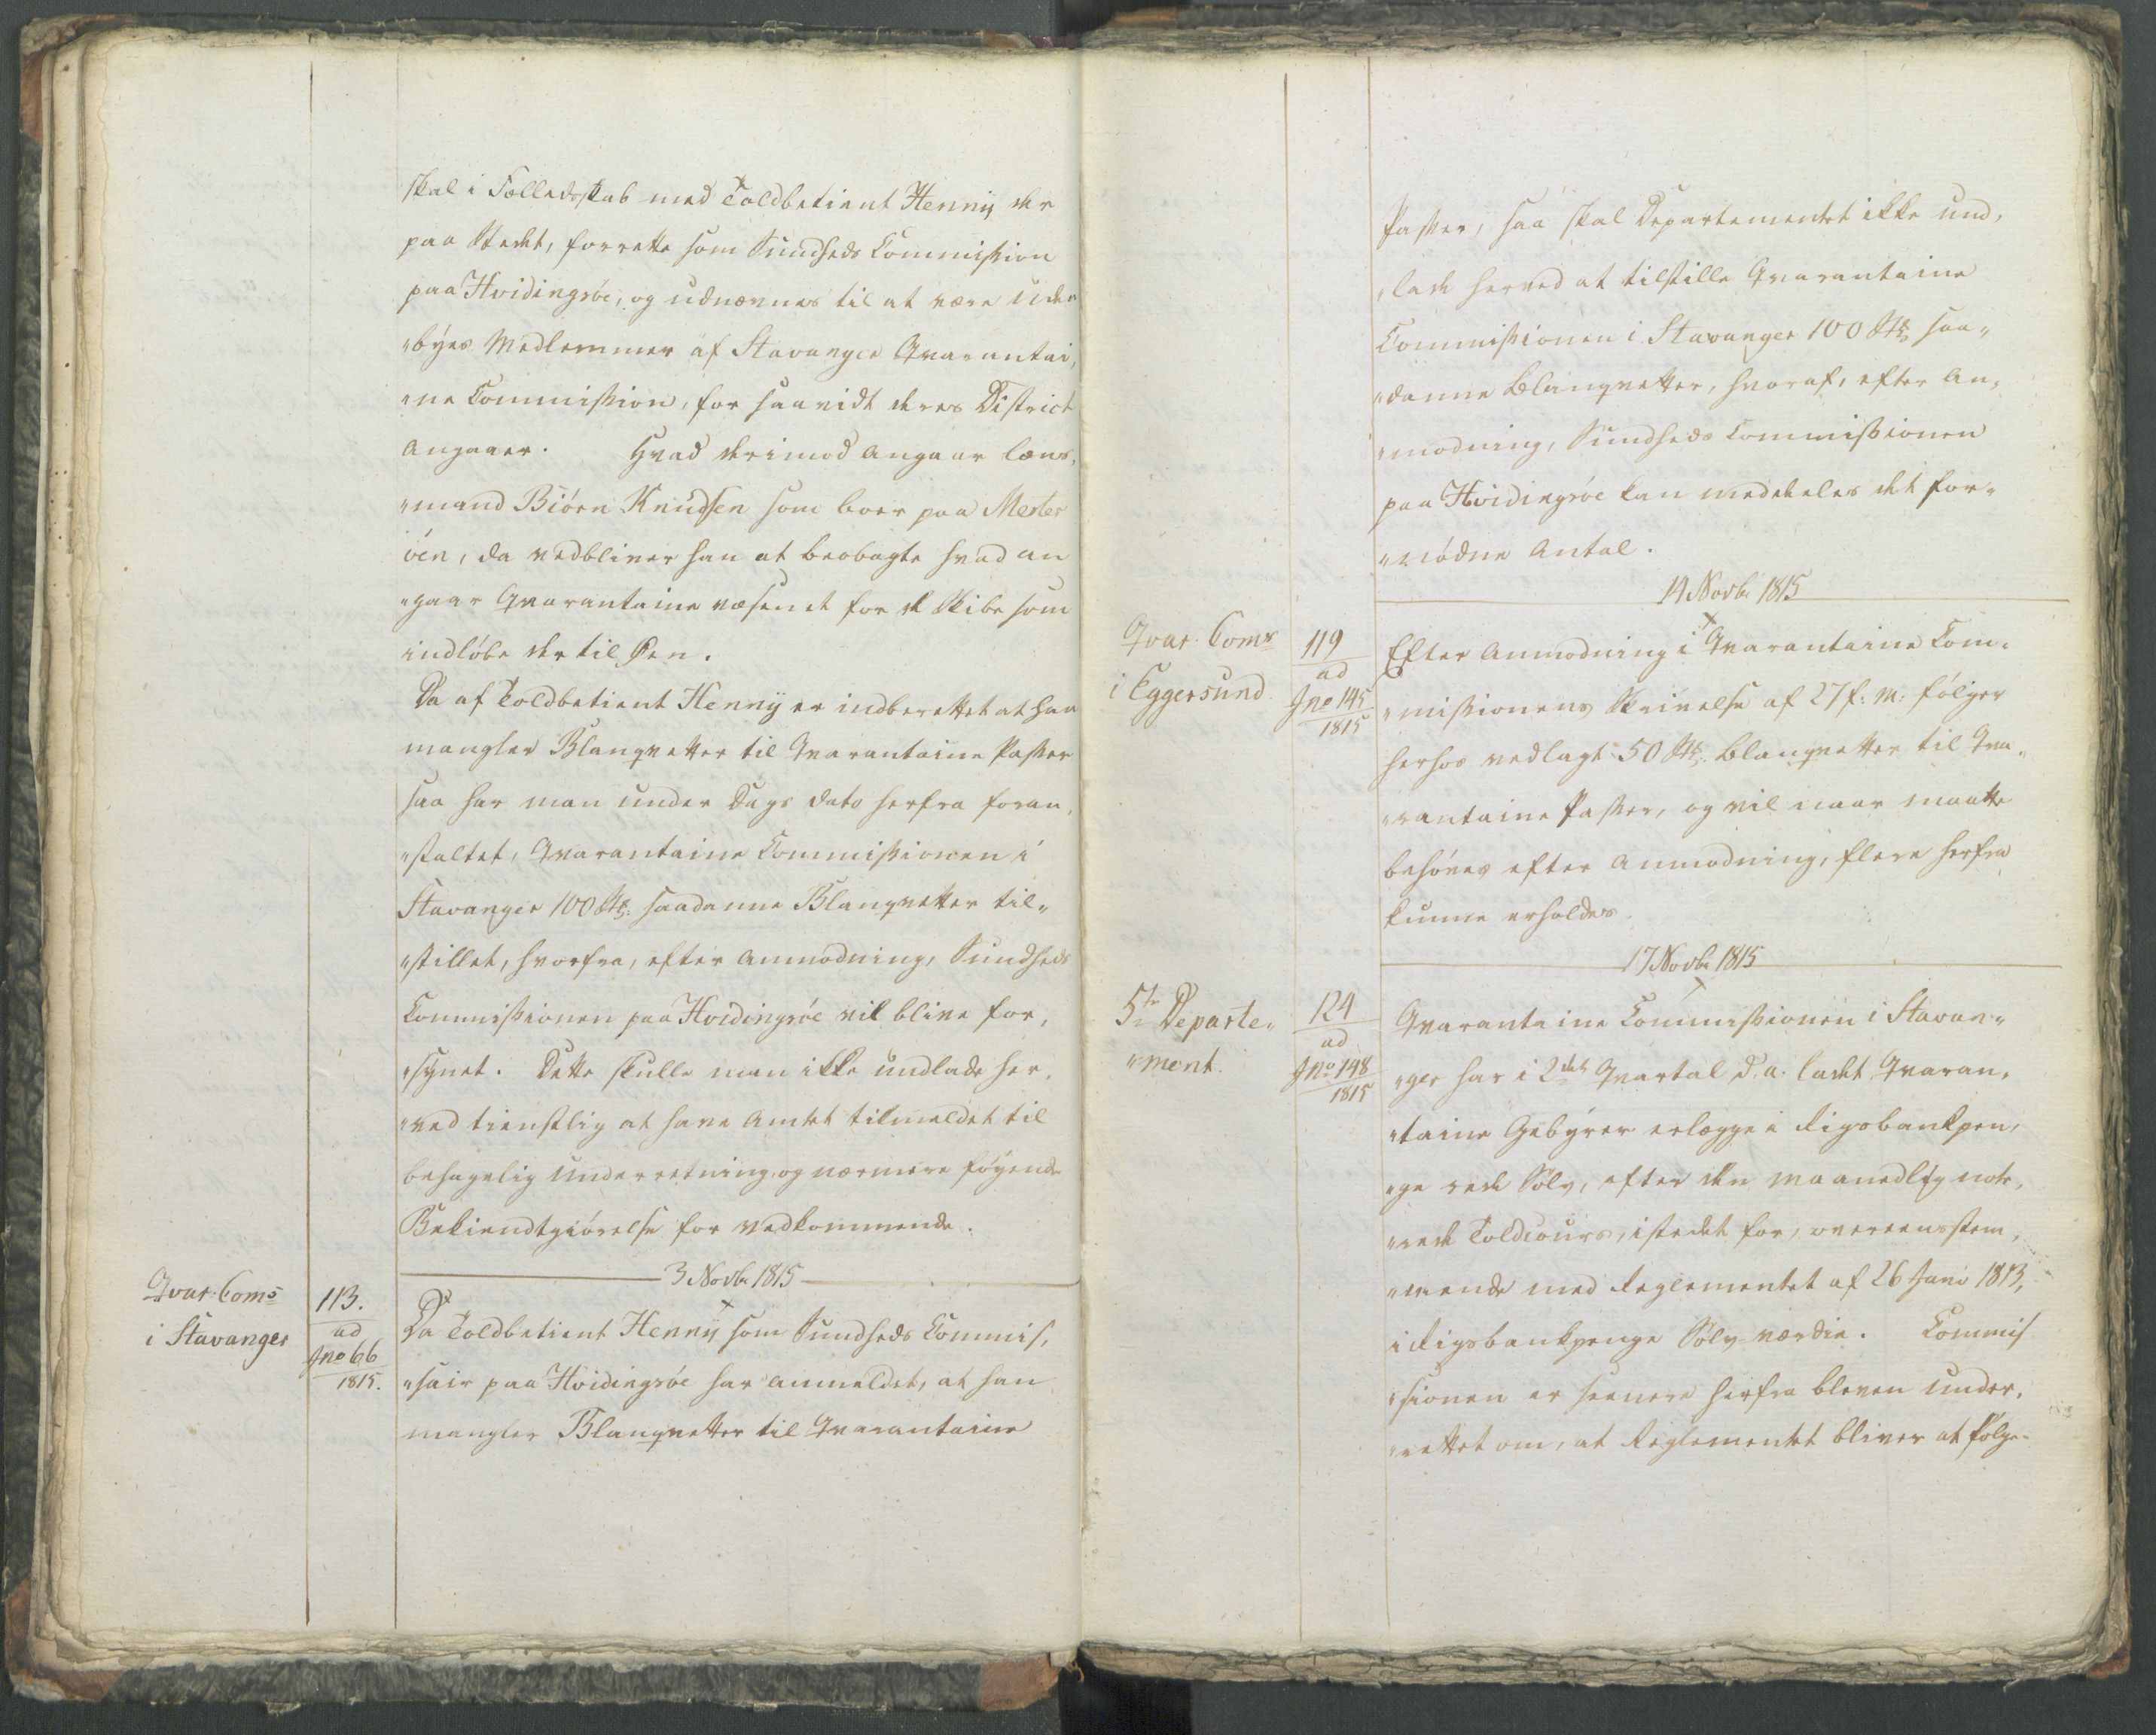 skal i Fælledsskab med Toldbetient Henny der
paa Stedet, forrette som Sundheds Commission
paa Hvidingsöe, og udnævnes til at være uden
"byes Medlemmer af Stavanger Qvarantai,
"ne Commission, for saavidt deres District
angaaer. Hvad derimod angaar Læns,
"mand Biörn Knudsen som boer paa Mester
öen, da vedbliver han at beobagte hvad an
"gaar Qvarantaine væsendt for de Skibe som
indlöbe der til Öen.
Da af Toldbetient Henny er indberettet at han
mangler Blanqvetter til Qvarantaine Passer
saa har man under Dags dato herfra foran,
"staltet, Qvarantaine Commissionen i
Stavanger 100 Stk: saadanne Blanqvetter til"
"stillet, hvorfra, efter Anmodning, Sundheds
Commissionen paa Hvidingsöe vil blive for,
"synet. Dette skulle man ikke undlade her,
"ved tienstlig at have Amtet tilmeldet til
behagelig Underretning, og nærmere föyende
Bekiendtgiörelse for Vedkommende.
3 Novbr 1815
Qvar: Coms
i Stavanger
113.
ad
Jno 66
1815.
Da Toldbetient Henny som Sundheds Commis,
"sair paa Hvidingsöe har anmeldet, at han
mangler Blanqvetter til Qvarantaine
Passer, saa skal Departementet ikke und,
"lade herved at tilstille Qvarantaine
Commissionen i Stavanger 100 Stk saa"
"danne Blanqvetter, hvoraf, efter An,
"modning, Sundheds Commissionen
paa Hvidingsöe kan meddeles det for"
"nödne Antal.
14 Novbr 1815
Qvar. Coms
i Eggersund.
119
ad
Jno 145
1815
Efter Anmodning i Qvarantaine Com,
"missionens Skrivelse af 27 f: M: fölger
herhos vedlagt 50 Stk. Blanqvetter til Qva"
"rantaine Passer, og vil naar maatte
behöves efter Anmodning, flere herfra
kunne erholdes.
17 Novbr 1815
5te Departe"
"ment.
124
ad
Jno 148
1815
Qvarantaine Commissionen i Stavan"
"ger har i 2det Qvartal d. a. ladet Qvaran,
"taine Gebyrer erlægge i Rigsbankpen,
"ge rede Sölv, efter den maanedlig note,
"rede Toldcours, istedet for, overeensstem,
"mende med Reglementet af 26 Juni 1813,
i Rigsbankpenge Sölv værdie. Commis
"sionen er senere herfra bleven under,
"rettet om, at Reglementet bliver at fölge.